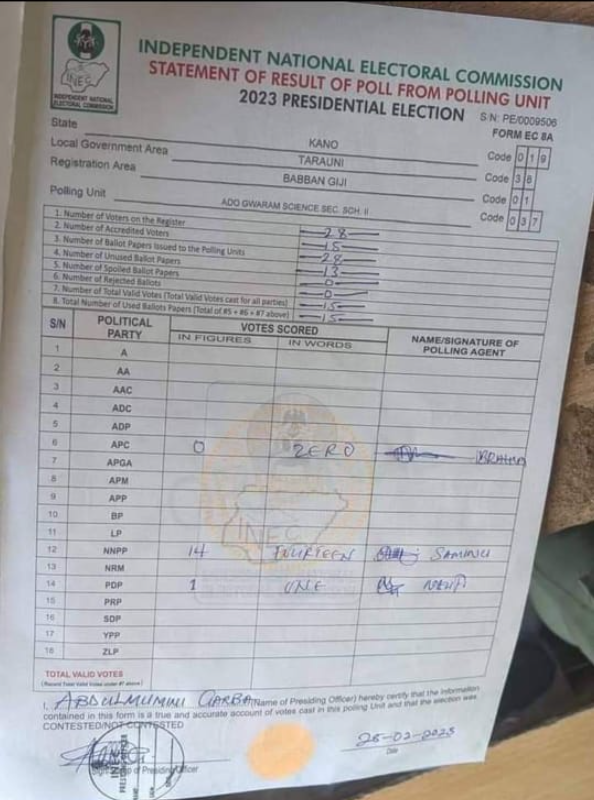 INEC
INDEPENDENT NATIONAL ELECTORAL COMMISSION
INDEPENDENT NATIONAL ELECTORAL COMMISSION
STATEMENT OF RESULT OF POLL FROM POLLING UNIT
2023 PRESIDENTIAL ELECTION
S/N: PE/0009506
FORM EC 8A
State KANO Code 0 1 9
Local Government Area TARAUNI Code 3 8
Registration Area BABBAN GIJI Code 0 1
Polling Unit ADO GWARAM SCIENCE SEC. SCH. II Code 0 3 7
1. Number of Voters on the Register 28
2. Number of Accredited Voters 15
3. Number of Ballot Papers Issued to the Polling Units 28
4. Number of Unused Ballot Papers 13
5. Number of Spoiled Ballot Papers 0
6. Number of Rejected Ballots 0
7. Number of Total Valid Votes (Total Valid Votes cast for all parties) 15
8. Total Number of Used Ballots Papers (Total of #5 + #6 + #7 above) 15
S/N POLITICAL PARTY VOTES SCORED NAME/SIGNATURE OF POLLING AGENT
IN FIGURES IN WORDS
1 A
2 AA
3 AAC
4 ADC
5 ADP
6 APC 0 ZERO
7 APGA
8 APM
9 APP
10 BP
11 LP
12 NNPP 14 FOURTEEN SAMINU
13 NRM
14 PDP 1 ONE
15 PRP
16 SDP
17 YPP
18 ZLP
TOTAL VALID VOTES
(Record Total Valid Votes under #7 above)
I, ABDULMUMINI GARBA (Name of Presiding Officer) hereby certify that the information
contained in this form is a true and accurate account of votes cast in this polling Unit and that the election was
CONTESTED/NOT CONTESTED
25-02-2023
Signature of Presiding Officer Date